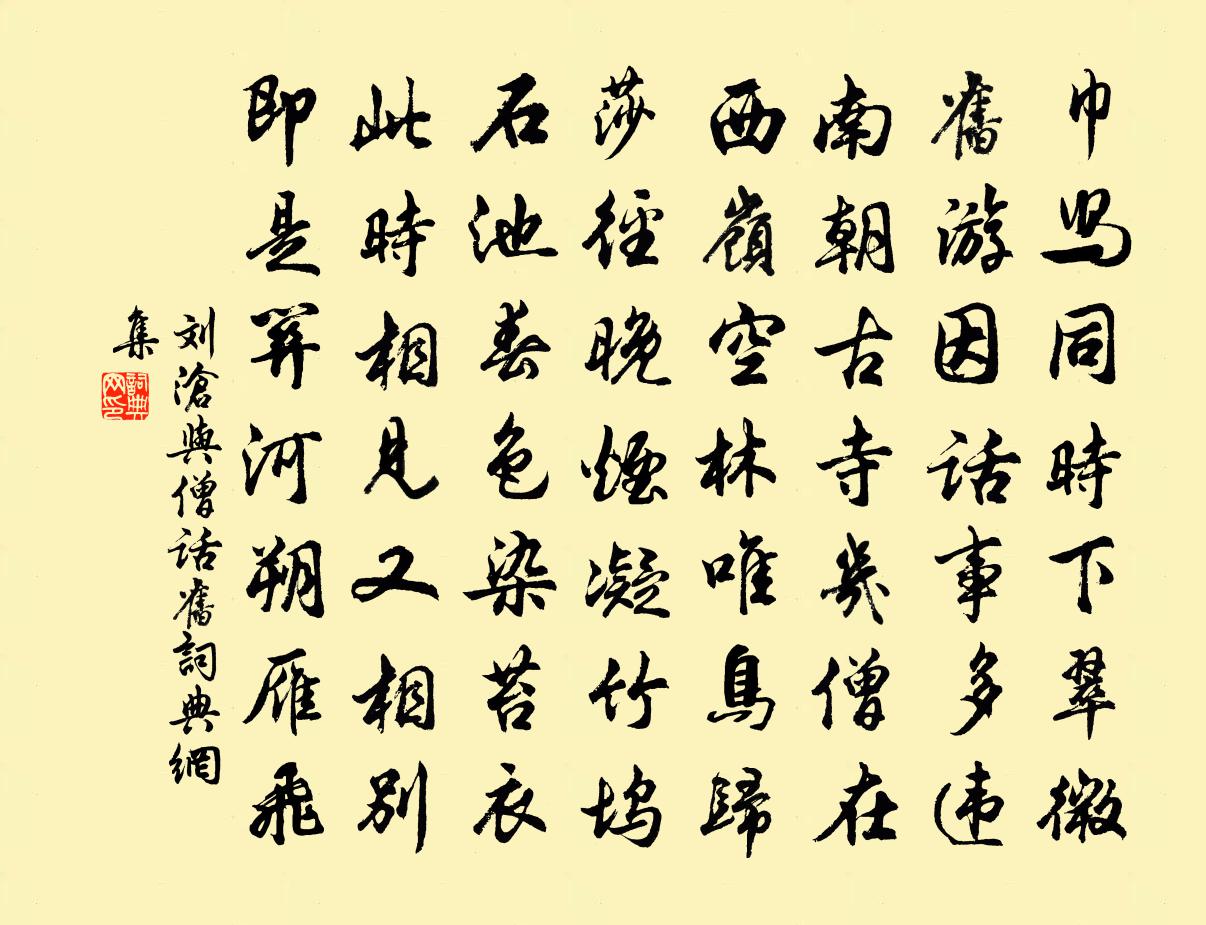 巾舄同時下翠微
舊游因話事多違
南朝古寺幾僧在
西嶺空林唯鳥歸
莎徑晚煙凝竹塢
石池春色染苔衣
此時相見又相別
即是關河朔雁飛
刘滄與僧話舊詞典網
集
詞典
网印